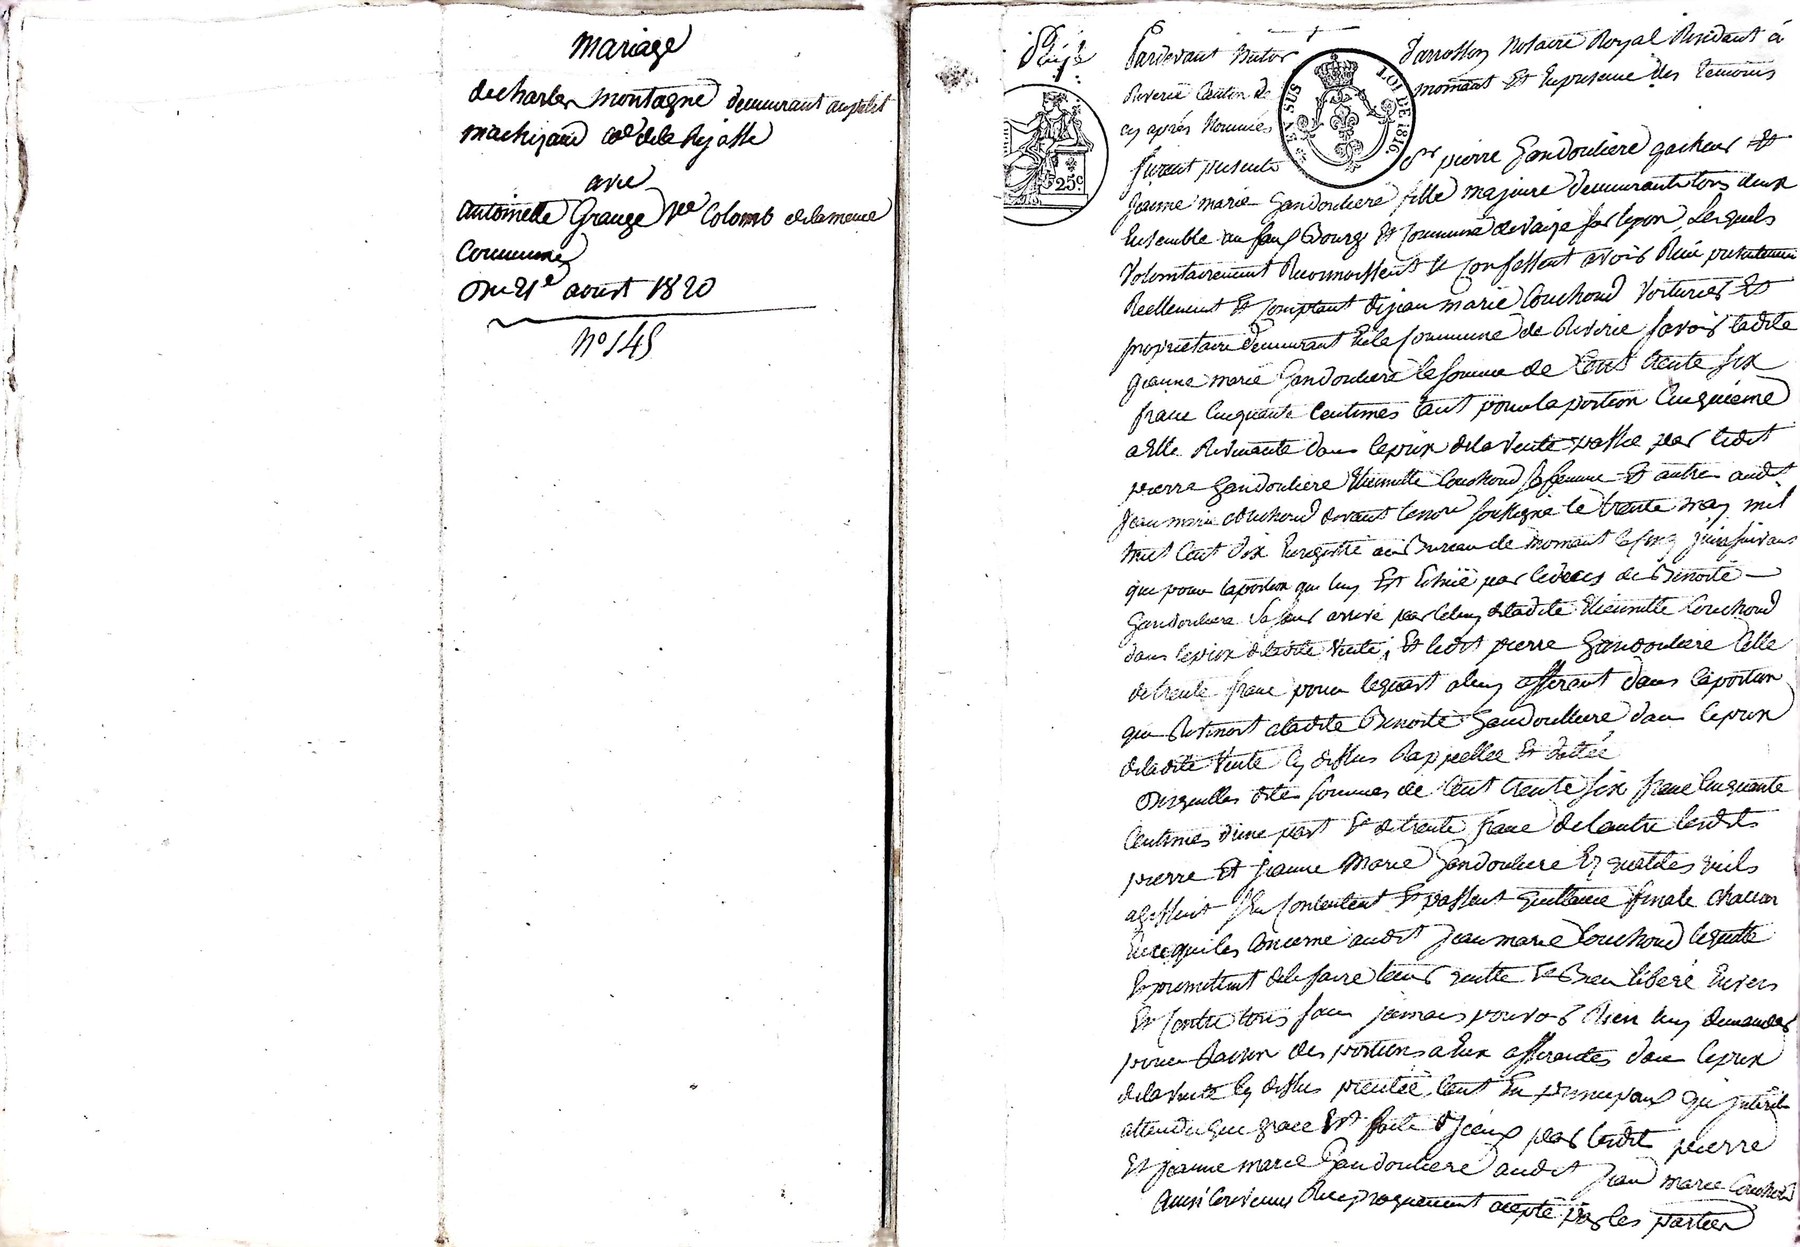 Mariage
de charles montagne demeurant au petit
machizaud cne de la Rajasse
avec
antoinette Grange Vve Colomb de la meme
Commune
Du 21e aoust 1820
n° 145
Pardevant Victor Darrosson Notaire Royal Residant à
Riverie Canton de mornant Et En presence des temoins
cy après Nommés
furent presents Sr pierre Gandouliere gacheur Et
jeanne marie Gandouliere fille majeure demeurants tous deux
Ensemble au faux Bourg Et Commune de vaize sur lyon, Lesquels
Volontairement Reconnoissent Et Confessent avoir Reçu presentement
Reellement Et Comptant de jean marie Couchoud Voiturier Et
proprietaire demeurant En la Commune de Riverie savoir ladite
jeanne marie Gandouliere la somme de Cent trente six
franc Cinquante Centimes tant pour la portion Cinquième
a Elle Revenante dans le prix de la Vente passée par ledit
pierre Gandouliere Etiennette Couchoud sa femme Et autres audit
jean marie Couchoud devant le nore soussigné le trente may mil
huit Cent dix Enregistré au Bureau de mornant le juin suivant
que pour la portion qui luy Est Echuë par le deces de Benoite
Gandouliere sa sœur arrivé par celuy de ladite Etiennette Couchoud
dans le prix de ladite Vente; Et ledit pierre Gandouliere Celle
de trente franc pour le quart a luy afferant dans la portion
qui Revenoit a ladite Benoite Gandouliere dans le prix
de ladite Vente Cy dessus Rappellée Et dattée
Desquelles dites sommes de Cent trente six franc Cinquante
Centimes d'une part Et de trente franc de l'autre lesdits
pierre Et jeanne Marie Gandouliere Es qualités quils
agissent s'En Contentent Et passent quittance finale chacun
En ce qui les Concerne audit jean marie Couchoud lequitte
Et promettent de le faire tenir quitte Et Bien libéré Envers
Et Contre tous sans jamais pouvoir Rien luy demander
pour Raison des portions a Eux afferantes dans le prix
de la Vente Cy dessus precitée, tant En principaux qu'interets
attendu que grace Est faite d'iceux par lesdit pierre
Et jeanne marie Gandouliere audit jean marie Couchoud
Ainsi Convenus Reciproquement accepté par les parties
EN SUS LOI DE 1816.
25c